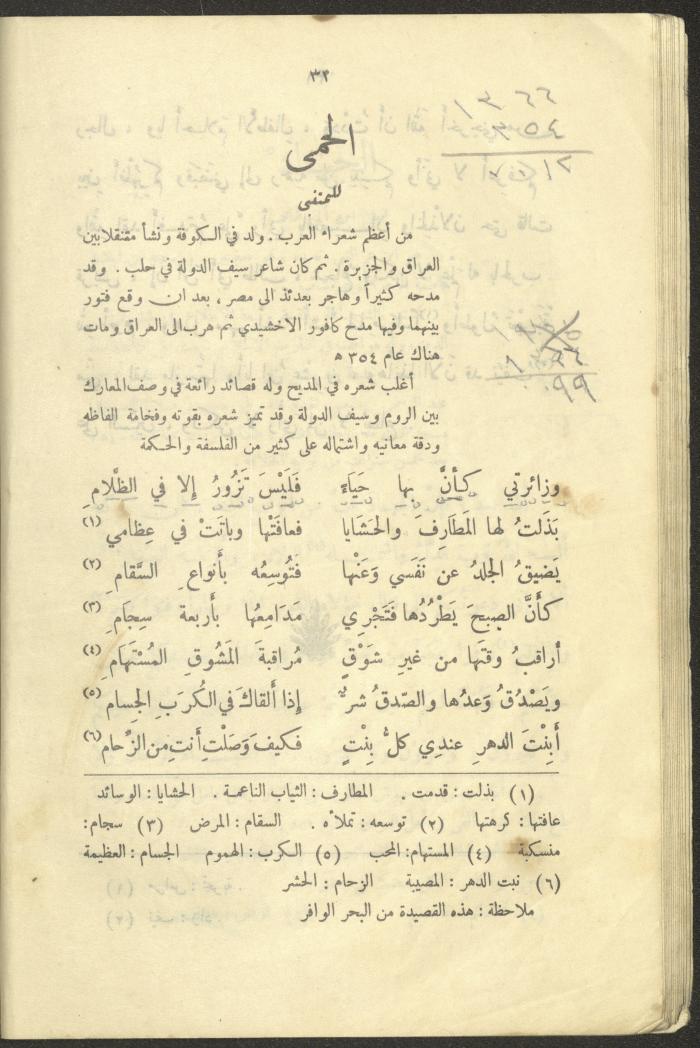 ٣٢
الحمى
للمتنبي
من أعظم شعراء العرب . ولد في الكوفة ونشأ متنقلا بين
العراق والجزيرة . ثم كان شاعر سيف الدولة في حلب . وقد
مدحه كثيراً وهاجر بعدئذ الى مصر ، بعد ان وقع فتور
بينهما وفيها مدح كافور الاخشيدي ثم هرب الى العراق ومات
هناك عام ٣٥٤ ه
أغلب شعره في المديح وله قصائد رائعة في وصف المعارك
بين الروم وسيف الدولة وقد تميز شعره بقوته وفخامة الفاظه
ودقة معانيه واشتماله على كثير من الفلسفة والحكمة
وزائرتي كأنَّ بها حَيَاءً فَلَيْسَ تَزُورُ إلا في الظَّلامِ
بَذَلتُ لها المَطَارِفَ والحَشَايا فعافَتْها وباتَتْ في عِظامي (١)
يَضيقُ الجلدُ عن نَفَسي وَعَنْها فَتُوسِعُه بأَنواعِ السَّقامِ (٢)
كأَنَّ الصبحَ يَطْرُدُها فَتَجْرِي مَدَامِعُها بأَربعة سِجَامِ (٣)
أُراقبُ وقتَها من غيرِ شَوْقٍ مُراقبةَ المَشُوقِ المُسْتَهَامِ (٤)
ويَصْدُقُ وَعدُها والصّدقُ شرٌّ إذا ألقاكَ في الكُرَبِ الجِسامِ (٥)
أَبِنْتَ الدهرِ عندِي كلُّ بِنْتٍ فكيفَ وَصَلْتِ أنتِ من الزِّحامِ (٦)
(١) بذلت : قدمت . المطارف : الثياب الناعمة . الحشايا : الوسائد
عافتها : كرهتها (٢) توسعه : تملأه . السقام : المرض (٣) سجام :
منسكبة (٤) المستهام : المحب (٥) الكرب : الهموم الجسام : العظيمة
(٦) نبت الدهر : المصيبة الزحام : الحشر
ملاحظة : هذه القصيدة من البحر الوافر